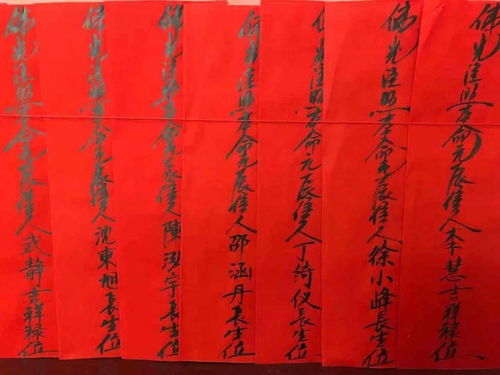 佛光注照本命元辰信人李慧吉祥禄位
佛光注照本命元辰信人徐小峰長生位
佛光注照本命元辰信人丁綺仪長生位
佛光注照本命元辰信人邵涵丹長生位
佛光注照本命元辰信人陳泓宇長生位
佛光注照本命元辰信人沈東旭長生位
佛光注照本命元辰信人武静吉祥禄位